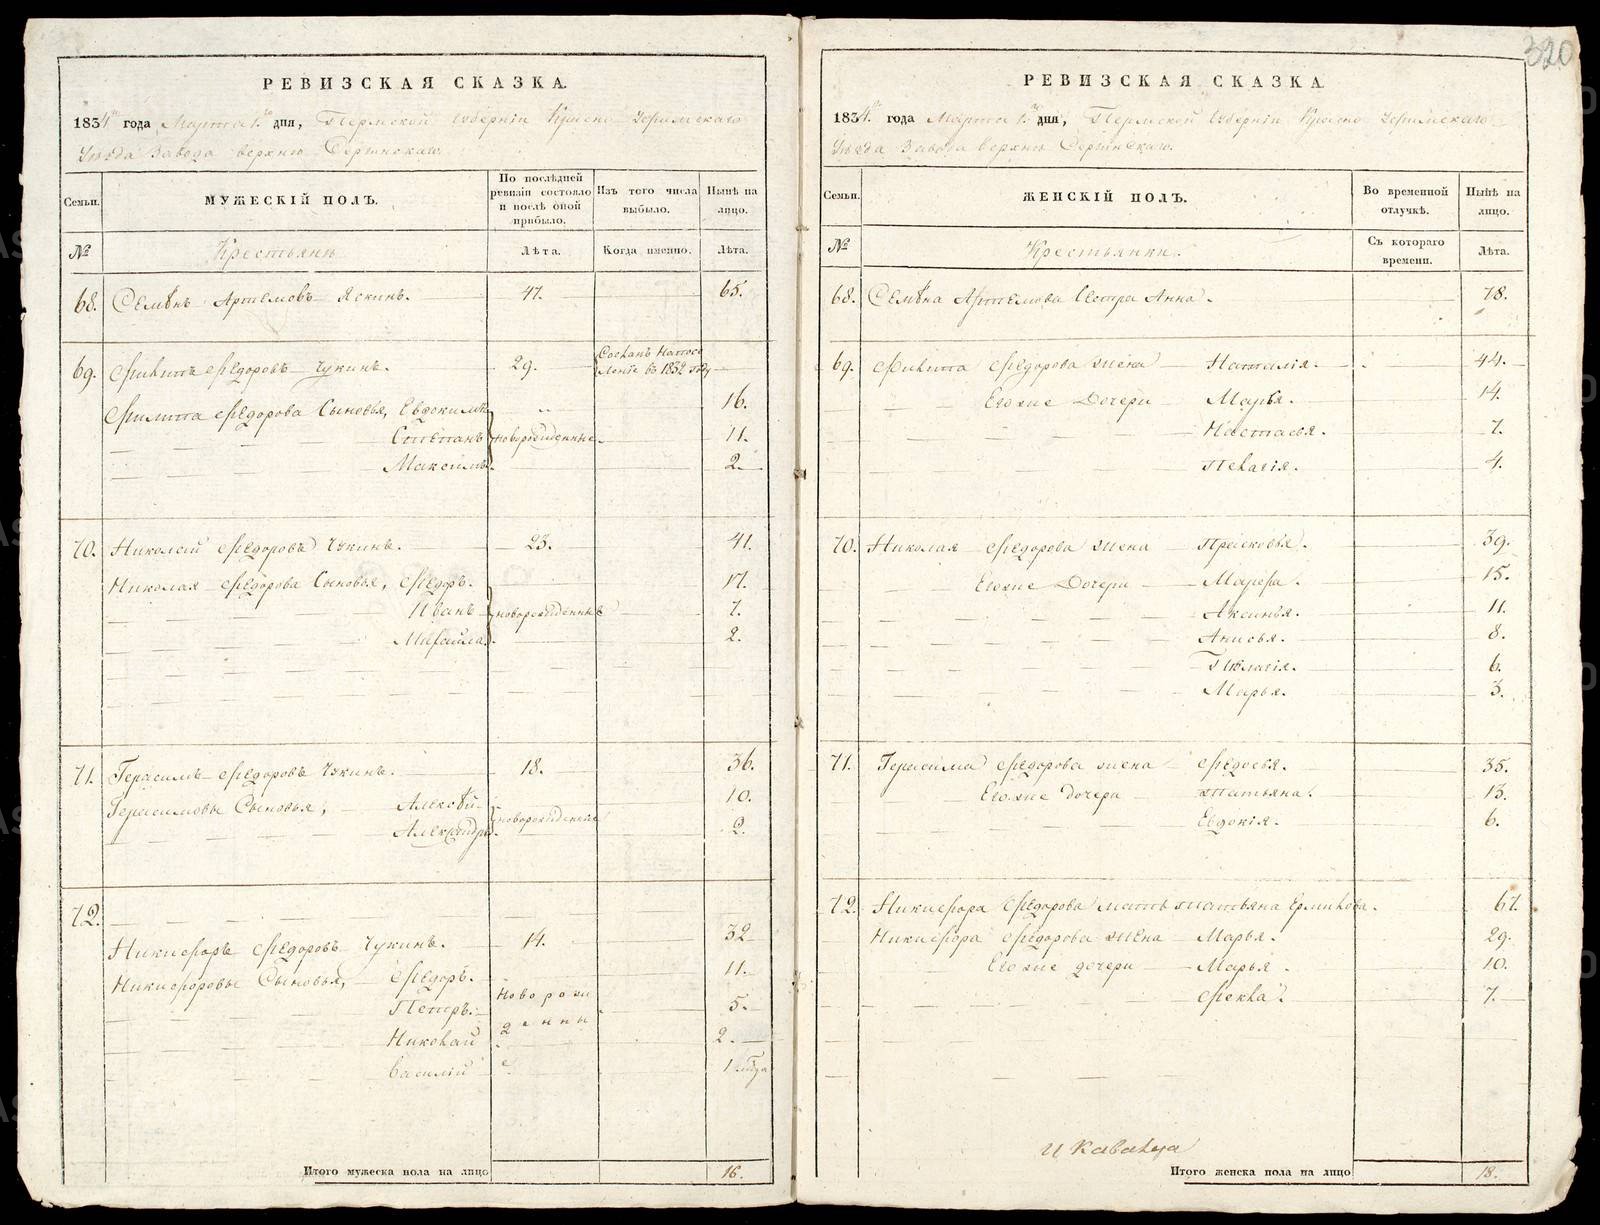 320
РЕВИЗСКАЯ СКАЗКА.
1834го года Марта 1го дня, Пермской Губерніи Красно Уфимскаго
Уѣзда Завода верхнѣ Сергинскаго.
Семьи. МУЖЕСКІЙ ПОЛЪ. По послѣдней ревизіи состояло и послѣ оной прибыло. Изъ того числа выбыло. Нынѣ на лицо.
№ Крестьянѣ Лѣта. Когда именно. Лѣта.
68. Семенъ Артемовъ Яскинъ. 47. 65.
69. Филипъ Федоровъ Чукинъ. 29. Сосланъ Напосе
леніе въ 1832 году
Филипа Федорова Сыновья, Евдокимъ „ 16.
Степанъ новорожденные 11.
Максимъ. 2.
70. Николай Федоровъ Чукинъ. 23. 41.
Николая Федорова Сыновья, Федоръ. 17.
Иванъ новорожденные 7.
Михайла. 2.
71. Герасимъ Федоровъ Чукинъ. 18. 36.
Герасимовы Сыновья, Алексѣй. 10.
Александръ. новорожденные 2.
72.
Никифоръ Федоровъ Чукинъ. 14. 32
Никифоровы Сыновья, Федоръ. 11.
Петръ. Новорож 5.
Николай денны 2.
Василій е. 1 года
Итого мужеска пола на лицо 16.
РЕВИЗСКАЯ СКАЗКА.
1834го года Марта 1го дня, Пермской Губерніи Красно Уфимскаго
Уѣзда Завода верхнѣ Сергинскаго.
Семьи. ЖЕНСКІЙ ПОЛЪ. Во временной отлучкѣ. Нынѣ на лицо.
№ Крестьянки. Съ котораго времени. Лѣта.
68. Семена Артемова Сестра Анна. 78.
69. Филипа Федорова жена Наталія. 44.
Его же Дочери Марья. 14.
Настасья. 7.
Пелагія. 4.
70. Николая Федорова жена Прасковья. 39.
Его же Дочери Марфа. 15.
Аксинья. 11.
Анисья. 8.
Пелагія. 6.
Марья. 3.
71. Герасима Федорова жена Федосья. 35.
Его же дочери Татьяна. 13.
Евдокія. 6.
72. Никифора Федорова мать Татьяна Ермилова. 67.
Никифора Федорова жена Марья. 29.
Его же дочери Марья. 10.
Фекла. 7.
Итого женска пола на лицо 18.